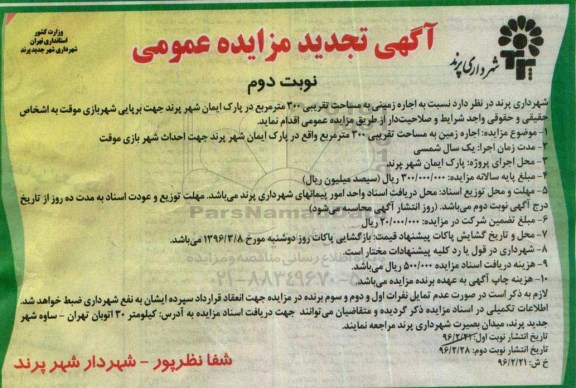 وزارت کشور
استانداری تهران
شهرداری شهر جدید پرند
آگهی تجدید مزایده عمومی
نوبت دوم
شهرداری پرند
شهرداری پرند در نظر دارد نسبت به اجاره زمینی به مساحت تقریبی ۳۰۰ مترمربع در پارک ایمان شهر پرند جهت برپایی شهربازی موقت به اشخاص
حقیقی و حقوقی واجد شرایط و صلاحیت‌دار از طریق مزایده عمومی اقدام نماید.
۱- موضوع مزایده: اجاره زمین به مساحت تقریبی ۳۰۰ مترمربع واقع در پارک ایمان شهر پرند جهت احداث شهر بازی موقت
۲- مدت زمان اجرا: یک سال شمسی
۳- محل اجرای پروژه: پارک ایمان شهر پرند
۴- مبلغ پایه سالانه مزایده: ۳۰۰/۰۰۰/۰۰۰ ریال (سیصد میلیون ریال)
۵- مهلت و محل توزیع اسناد: محل دریافت اسناد واحد امور پیمانهای شهرداری پرند می‌باشد. مهلت توزیع و عودت اسناد به مدت ده روز از تاریخ
درج آگهی نوبت دوم می‌باشد. (روز انتشار آگهی محاسبه می‌شود)
۶- مبلغ تضمین شرکت در مزایده: ۲۰/۰۰۰/۰۰۰ ریال
۷- محل و تاریخ گشایش پاکات پیشنهاد قیمت: بازگشایی پاکات روز دوشنبه مورخ ۱۳۹۶/۳/۸ می‌باشد.
۸- شهرداری در قبول یا رد کلیه پیشنهادات مختار است.
۹- هزینه دریافت اسناد مزایده ۵۰۰/۰۰۰ ریال می‌باشد.
۱۰- هزینه چاپ آگهی به عهده برنده مزایده می‌باشد.
لازم به ذکر است در صورت عدم تمایل نفرات اول و دوم و سوم برنده در مزایده جهت انعقاد قرارداد سپرده ایشان به نفع شهرداری ضبط خواهد شد.
اطلاعات تکمیلی در اسناد مزایده ذکر گردیده و متقاضیان می‌توانند جهت دریافت اسناد مزایده به آدرس: کیلومتر ۳۰ اتوبان تهران - ساوه شهر
جدید پرند، میدان بصیرت شهرداری پرند مراجعه نمایند.
تاریخ انتشار نوبت اول: ۹۶/۲/۲۱
تاریخ انتشار نوبت دوم: ۹۶/۲/۲۸
خ ش: ۹۶/۲/۲۱
شفا نظرپور - شهردار شهر پرند
ParsNamadData
پایگاه اطلاع رسانی مناقصه و مزایده